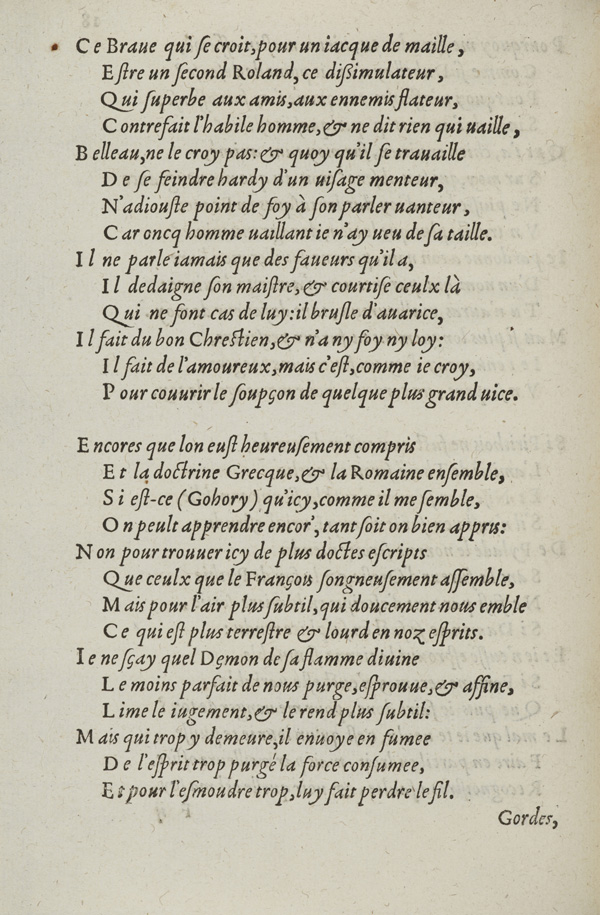 Ce Braue qui ſe croit, pour un iacque de maille,
Eſtre un ſecond Roland, ce dißimulateur,
Qui ſuperbe aux amis, aux ennemis flateur,
Contrefait l'habile homme, & ne dit rien qui uaille,
Belleau, ne le croy pas: & quoy qu'il ſe trauaille
De ſe feindre hardy d'un uiſage menteur,
N'adiouſte point de foy à ſon parler uanteur,
Car oncq homme uaillant ie n'ay ueu de ſa taille.
Il ne parle iamais que des faueurs qu'il a,
Il dedaigne ſon maiſtre, & courtiſe ceulx là
Qui ne font cas de luy: il bruſle d'auarice,
Il fait du bon Chreſtien, & n'a ny foy ny loy:
Il fait de l'amoureux, mais c'eſt, comme ie croy,
Pour couurir le ſoupçon de quelque plus grand uice.
Encores que lon euſt heureuſement compris
Et la doctrine Grecque, & la Romaine enſemble,
Si eſt-ce (Gohory) qu'icy, comme il me ſemble,
On peult apprendre encor', tant ſoit on bien appris:
Non pour trouuer icy de plus doctes eſcripts
Que ceulx que le François ſongneuſement aſſemble,
Mais pour l'air plus ſubtil, qui doucement nous emble
Ce qui eſt plus terreſtre & lourd en noz eſprits.
Ie ne ſçay quel Dęmon de ſa flamme diuine
Le moins parfait de nous purge, eſprouue, & affine,
Lime le iugement, & le rend plus ſubtil:
Mais qui trop y demeure, il enuoye en fumee
De l'eſprit trop purgé la force conſumee,
Et pour l'eſmoudre trop, luy fait perdre le fil.
Gordes,